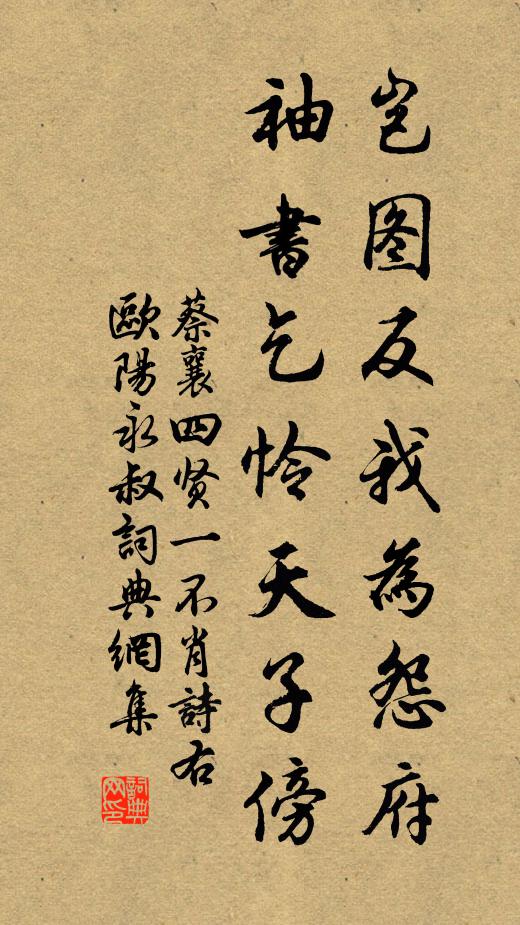 岂图反我為怨府
袖書乞怜天子傍
蔡襄四贤一不肖詩右
歐陽永叔詞典網集
詞典网印